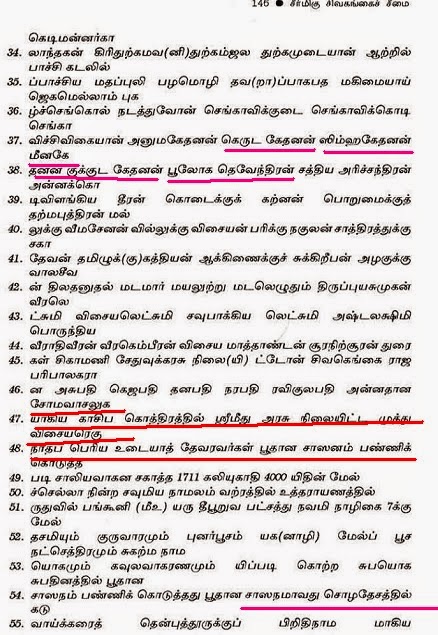 146 ● சீர்மிகு சிவகங்கைச் சீமை
கெடிமன்னர்கா
34. லாந்தகன் கிரிதுற்கமவ(னி)துற்கம்ஜல துற்கமுடையான் ஆற்றில்
பாச்சி கடலில்
35. ப்பாச்சிய மதப்புலி பழமொழி தவ(றா)ப்பாகபத மகிமையாய்
ஜெகமெல்லாம் புக
36. ழ்ச்செங்கொல் நடத்துவோன் செங்காவிக்குடை செங்காவிக்கொடி
செங்கா
37. விச்சிவிகையான் அனுமகேதனன் கெருட கேதனன் ஸிம்ஹகேதனன்
மீனகே
38. தனன் குக்குட கேதனன் பூலோக தெவேந்திரன் சத்திய அரிச்சந்திரன்
அன்னக்கொ
39. டிவிளங்கிய தீரன் கொடைக்குக் கற்னன் பொறுமைக்குத்
தற்மபுத்திரன் மல்
40. லுக்கு வீமசேனன் வில்லுக்கு விசையன் பரிக்கு நகுலன் சாத்திரத்துக்கு
சகா
41. தேவன் தமிழுக்(கு)கத்தியன் ஆக்கிணைக்குச் சுக்கிறீபன் அழகுக்கு
வாலசீவ
42. ன் திலதனுதல் மடமார் மயலுற்று மடலெழுதும் திருப்புயசுமுகன்
வீரலெ
43. ட்சுமி விசையலெட்சுமி சவுபாக்கிய லெட்சுமி அஷ்டலக்ஷிமி
பொருந்திய
44. வீராதிவீரன் வீரகெம்பீரன் விசைய மாத்தாண்டன் சூரநிற்சூரன் துரை
45. கள் சிகாமணி சேதுவுக்கரசு நிலை(யி) ட்டோன் சிவகெங்கை ராஜ
பரிபாலகரா
46. ன அசுபதி கெஜபதி தனபதி நரபதி ரவிகுலபதி அன்னதான
சோமவாசலுக
47. யாகிய காசிப கொத்திரத்தில் ஸ்ரீமீது அரசு நிலையிட்ட முத்து
விசையரெகு
48. நாதப பெரிய உடையாத் தேவரவர்கள் பூதான சாஸனம் பண்ணிக்
கொடுத்த
49. படி சாலியவாகன சகாத்த 1711 கலியுகாதி 4000 யிதின் மேல்
50. ச்செல்லா நின்ற சவுமிய நாமலம் வற்ரத்தில் உத்தராயணத்தில்
51. ருதுவில் பங்கூனி (மீஉ) யரு தீபூறுவ பட்சத்து நவமி நாழிகை 7க்கு
மேல்
52. தசமியும் குருவாரமும் புனர்பூசம் யக(னாழி) மேல்ப் பூச
நட்செத்திரமும் சுகற்ம நாம
53. யொகமும் கவுலவாகரணமும் யிப்படி கொற்ற சுபயொக
சுபதினத்தில் பூதான
54. சாஸனம் பண்ணிக் கொடுத்தது பூதான சாஸநமாவது சொழதேசத்தில்
கடு
55. வாய்க்கரைத் தென்புத்தூருக்குப் பிறிதிநாம மாகிய